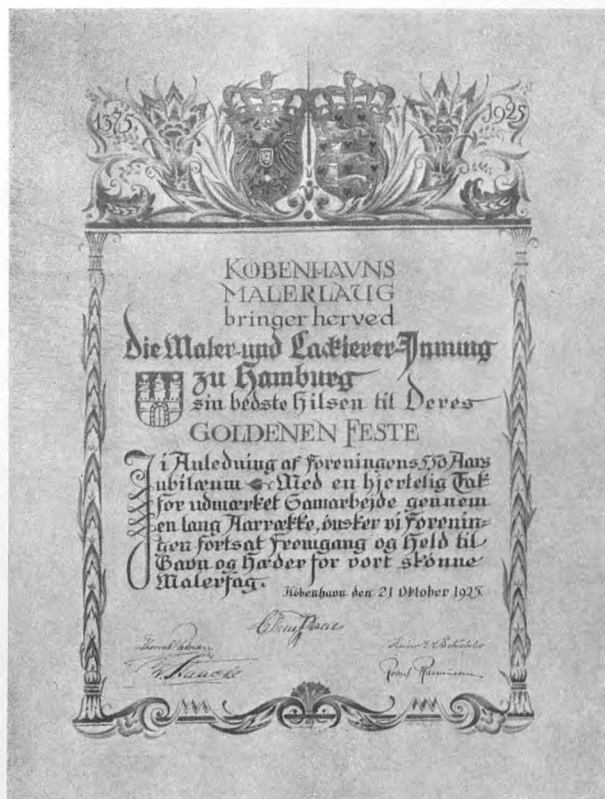 1375 1925
KØBENHAVNS
MALERLAUG
bringer herved
Die Maler- und Lackierer-Innung
zu Hamburg
sin bedste Hilsen til Deres
GOLDENEN FESTE
i Anledning af Foreningens 550 Aars
Jubilæum Med en hjertelig Tak
for udmærket Samarbejde gennem
en lang Aarrække, ønsker vi Forenin-
gen fortsat Fremgang og Held til
Gavn og Hæder for vort skønne
Malerfag.
København den 21 Oktober 1925.